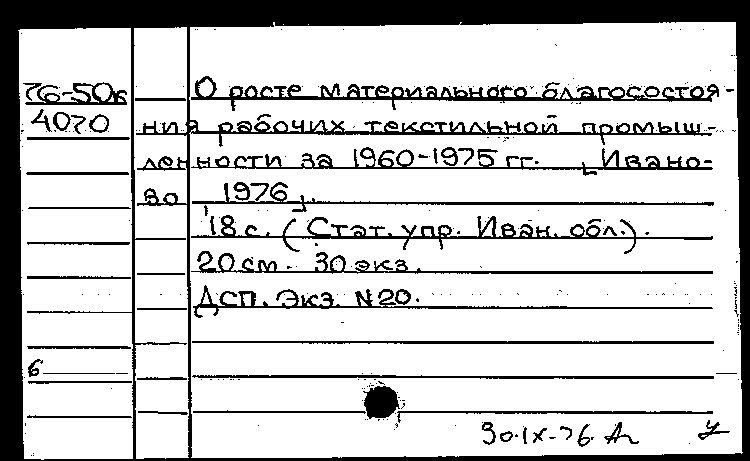 76-50к О росте материального благосостоя-
4070 ния рабочих текстильной промыш-
ленности за 1960-1975 гг. [Ивано-
во 1976].
18 с. (Стат. упр. Иван. обл.).
20 см. 30 экз.
ДСП. Экз. N20.
6
30.IX-76.